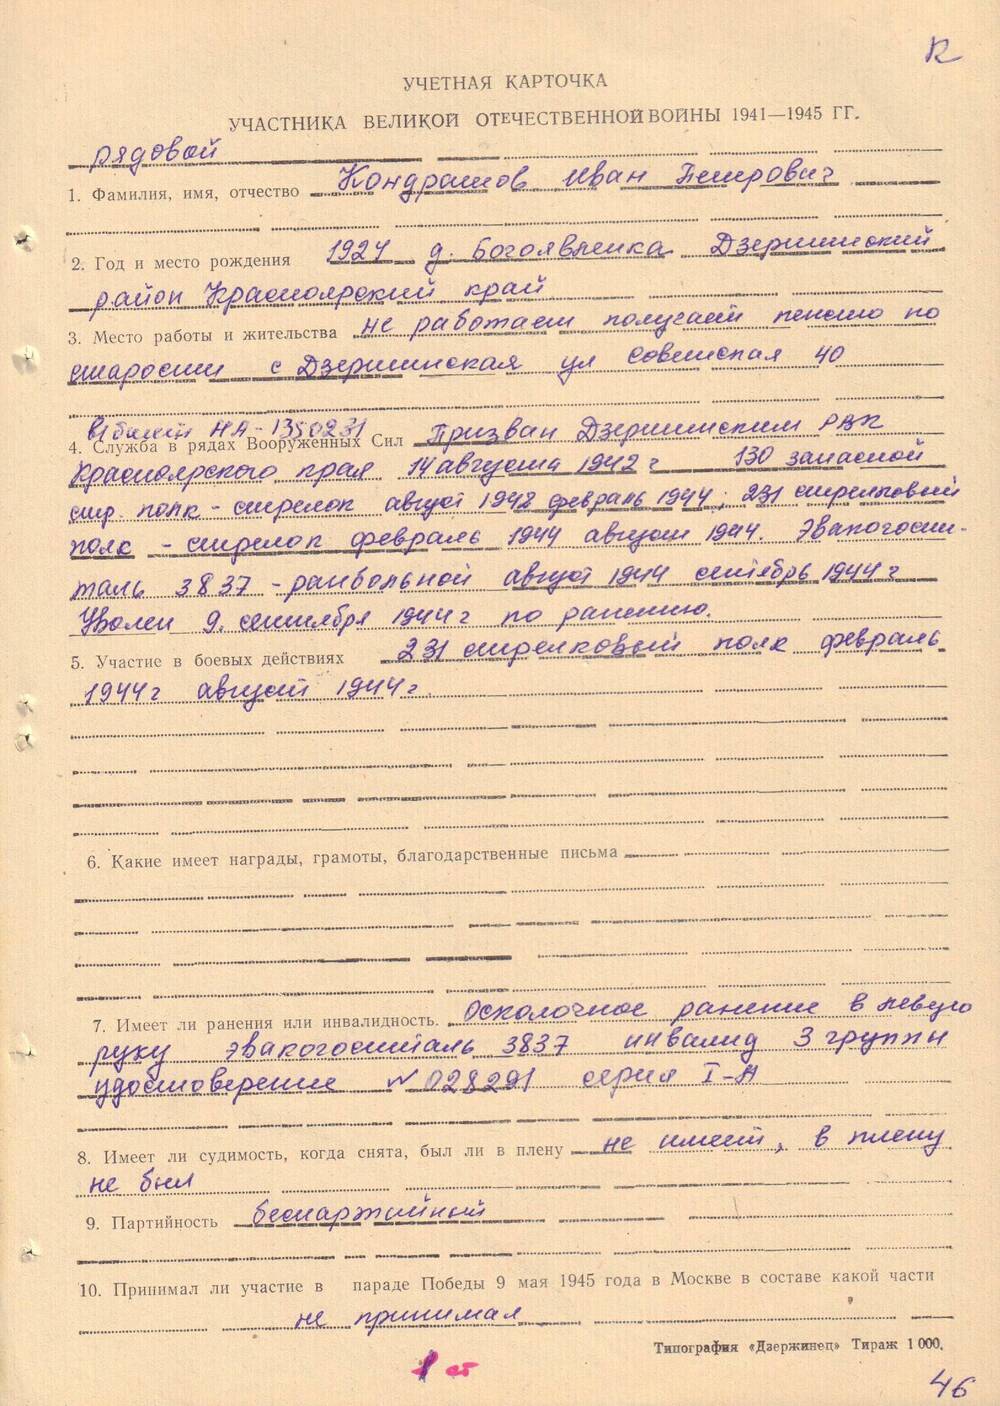 К
УЧЕТНАЯ КАРТОЧКА
УЧАСТНИКА ВЕЛИКОЙ ОТЕЧЕСТВЕННОЙ ВОЙНЫ 1941—1945 ГГ.
рядовой
1. Фамилия, имя, отчество Кондрашов Иван Петрович
2. Год и место рождения 1924 д. Богоявленка Дзержинский
район Красноярский край
3. Место работы и жительства не работает получает пенсию по
старости с Дзержинская ул Советская 40
в/билет НА-1350231
4. Служба в рядах Вооруженных Сил Призван Дзержинским РВК
Красноярского края 14 августа 1942 г 130 запасной
стр. полк - стрелок август 1942 февраль 1944; 231 стрелковый
полк - стрелок февраль 1944 август 1944. Эвакогоспи-
таль 3837 - ранбольной август 1944 сентябрь 1944 г
Уволен 9. сентября 1944 г по ранению.
5. Участие в боевых действиях 231 стрелковый полк февраль
1944 г август 1944 г
6. Какие имеет награды, грамоты, благодарственные письма
7. Имеет ли ранения или инвалидность. Осколочное ранение в левую
руку эвакогоспиталь 3837 инвалид 3 группы
удостоверение № 028291 серия I-А
8. Имеет ли судимость, когда снята, был ли в плену не имеет, в плену
не был
9. Партийность беспартийный
10. Принимал ли участие в параде Победы 9 мая 1945 года в Москве в составе какой части
не принимал
Типография «Дзержинец» Тираж 1 000.
46